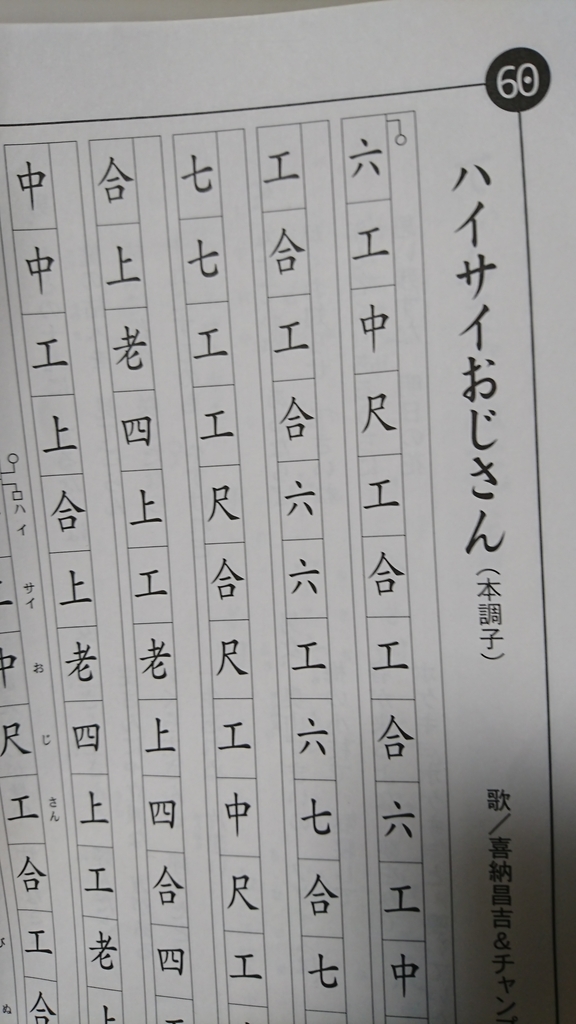 60
ハイサイおじさん(本調子)
歌/喜納昌吉&チャンプ
六工中尺工合工合六工中
工合工合六六工六七合七
七七工工尺合尺工中尺工
合上老四上工老上四合四
中中工上合上老四上工老
ハイサイおじさん
中尺工合工合